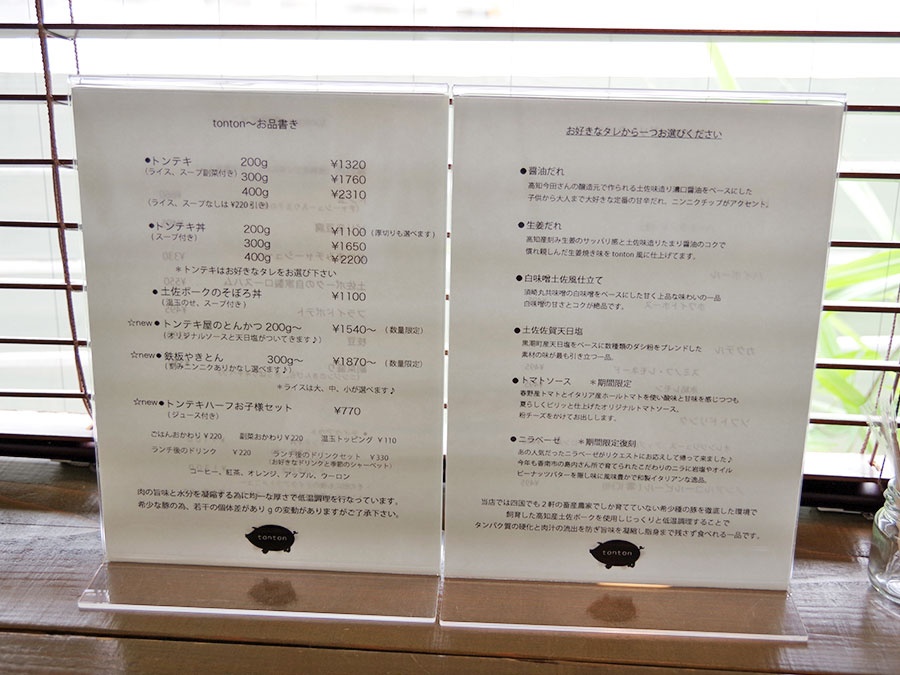 tonton〜お品書き
●トンテキ 200g ¥1320
(ライス、スープ副菜付き) 300g ¥1760
400g ¥2310
(ライス、スープなしは¥220引き)
●トンテキ丼 200g ¥1100 (厚切りも選べます)
(スープ付き) 300g ¥1650
400g ¥2200
*トンテキはお好きなタレをお選び下さい
●土佐ポークのそぼろ丼 ¥1100
(温玉のせ、スープ付き)
☆new●トンテキ屋のとんかつ 200g〜 ¥1540〜 (数量限定)
(オリジナルソースと天日塩がついてきます♪)
☆new●鉄板やきとん 300g〜 ¥1870〜 (数量限定)
(刻みニンニクありかなし選べます♪)
*ライスは大、中、小が選べます♪
☆new●トンテキハーフお子様セット ¥770
(ジュース付き)
ごはんおかわり ¥220 副菜おかわり ¥220 温玉トッピング ¥110
ランチ後のドリンク ¥220 ランチ後のドリンクセット ¥330
(お好きなドリンクと季節のシャーベット)
コーヒー、紅茶、オレンジ、アップル、ウーロン
肉の旨味と水分を凝縮する為に均一な厚さで低温調理を行なっています。
希少な豚の為、若干の個体差がありgの変動がありますがご了承下さい。
tonton
お好きなタレから一つお選びください
●醤油だれ
高知今田さんの醸造元で作られる土佐味造り濃口醤油をベースにした
子供から大人まで大好きな定番の甘辛だれ、ニンニクチップがアクセント。
●生姜だれ
高知産刻み生姜のサッパリ感と土佐味造りたまり醤油のコクで
慣れ親しんだ生姜焼き味をtonton風に仕上げてます。
●白味噌土佐風仕立て
須崎丸共味噌の白味噌をベースにした甘く上品な味わいの一品
白味噌の甘さとコクが絶品です。
●土佐佐賀天日塩
黒潮町産天日塩をベースに数種類のダシ粉をブレンドした
素材の味が最も引き立つ一品。
●トマトソース *期間限定
春野産トマトとイタリア産ホールトマトを使い酸味と甘味を感じつつも
夏らしくピリッと仕上げたオリジナルトマトソース、
粉チーズをかけてお出しします。
●ニラベーゼ *期間限定復刻
あの人気だったニラベーゼがリクエストにお応えして帰って来ました♪
今年も香南市の島内さん所で育てられたこだわりのニラに岩塩やオイル
ピーナッツバターを隠し味に風味豊かで和製イタリアンな逸品。
当店では四国でも2軒の畜産農家でしか育てていない希少種の豚を徹底した環境で
飼育した高知産土佐ポークを使用しじっくりと低温調理することで
タンパク質の硬化と肉汁の流出を防ぎ旨味を凝縮し脂身まで残さず食べれる一品です。
tonton